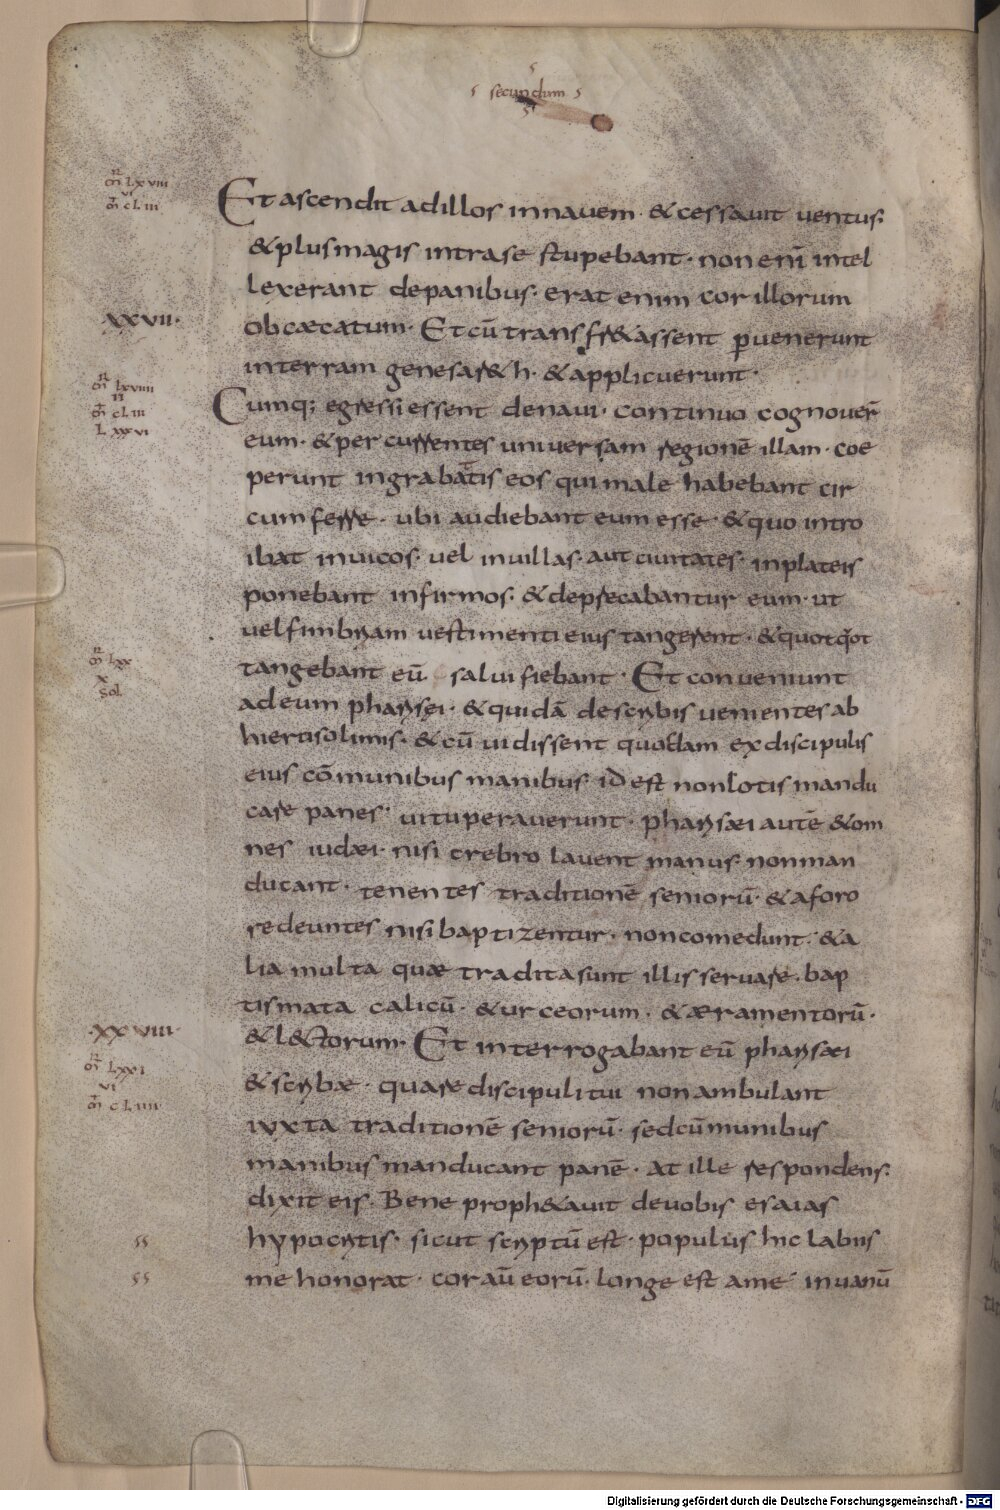 secundum
mr LXVIII
VI
mt CLIII
Et ascendit ad illos in navem · & cessavit ventus ·
& plus magis intra se stupebant · non enī intel
lexerant de panibus · erat enim cor illorum
obcæcatum · Et cū transfr&assent pervenerunt
XXVII ·
in terram genesar&h · & applicuerunt ·
mr LXVIIII
II
mt CLIII
LXXVI
Cumq; egressi essent de navi · continuo cognover̄
eum · & percurrentes universam regionē illam · coe
perunt in grabattis eos qui male habebant cir
cumferre · ubi audiebant eum esse · & quo intro
ibat in vicos · vel in villas · aut civitates · in plateis
ponebant infirmos · & deprecabantur eum · ut
vel fimbriam vestimenti eius tangerent · & quotquot
mr LXX
X
sol
tangebant eū salvi fiebant · Et conveniunt
ad eum pharisei · & quidā de scribis venientes ab
hierusolimis · & cū vidissent quosdam ex discipulis
eius cōmunibus manibus id est non lotis mandu
care panes · vituperaverunt · pharisæi autē & om
nes iudæi · nisi crebro lavent manus · non man
ducant · tenentes traditionē seniorū · & a foro
redeuntes nisi baptizentur · non comedunt · & a
lia multa quæ tradita sunt illis servare · bap
tismata calicū · & urceorum · & æramentorū ·
XXVIII ·
& l&torum · Et interrogabant eū pharisæi
mr LXXI
VI
mt CLIIII
& scribæ · quare discipuli tui non ambulant
iuxta traditionē seniorū · sed cūmunibus
manibus manducant panē · at ille respondens ·
dixit eis · Bene proph&avit de vobis esaias
hypocritis · sicut scriptū est · populus hic labiis
me honorat · cor aū eorū · longe est a me · in vanū
Digitalisierung gefördert durch die Deutsche Forschungsgemeinschaft - DFG